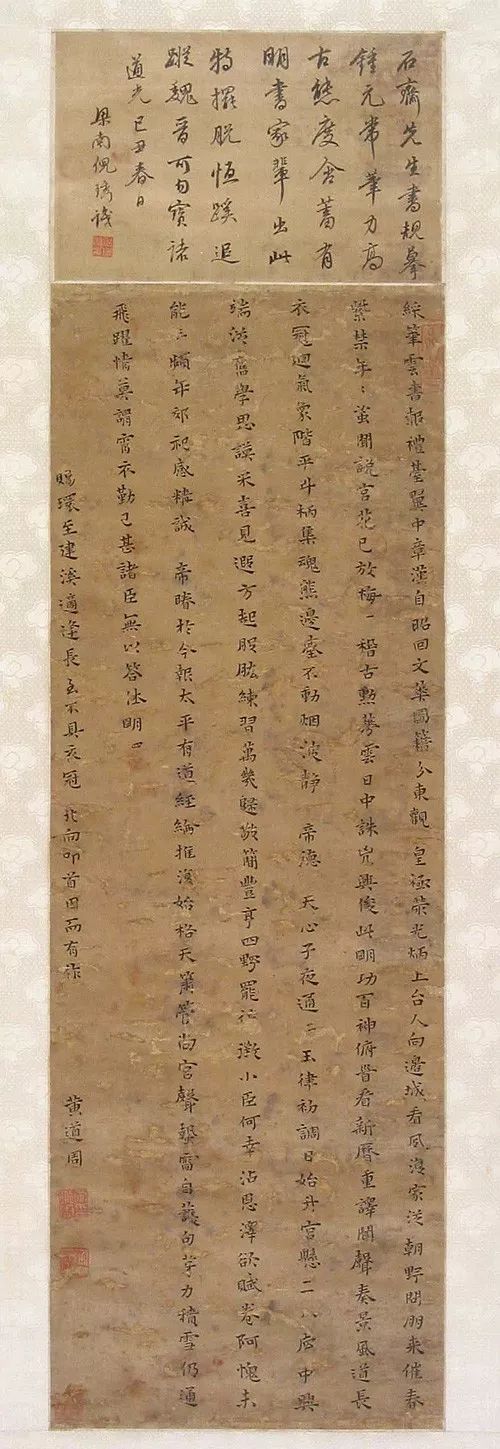 石齋先生書規摹
鍾元常筆力高
古態度含蓄有
明書家輩出此
特擺脫恆蹊追
蹤魏晉可勿寶諸
道光己丑春日
梁南倪璓識
綵筆雲書報禮臺翼中章漢自昭回文華圖籍分東觀皇極榮光炳上台人向邊城看風泿家從朝野問朋來催春
禁年〻蚤聞說宮花已放梅一稽古勳華雲日中誅兇興俊此明功百神俯晉看新曆重譯聞聲奏景風道長
衣冠迴氣象階平斗柄集魂熊邊塵不動烟波靜帝德天心子夜通二玉律初調日始升宮懸二八應中興
端淡舊學思謨采喜見遐方起股肱練習萬幾疑敬簡豐亨四野罷徵小臣何幸沾恩澤欲賦卷阿愧未
能三頻年郊祀感精誠帝眷於今報太平有道經綸推復始格天簫管尚宮聲發雷自護句芽力積雪仍通
飛躍情莫謂宵衣勤已甚諸臣無以答休明四
賜環至建溪適逢長至不具衣冠北向叩首因而有作
黃道周